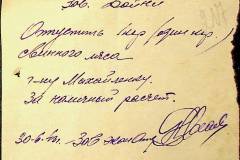 Зав. Бойни
Отпустить 1 кгр (один кгр.)
свиного мяса
г-ну Михайленку.
За наличный расчет.
30-6-